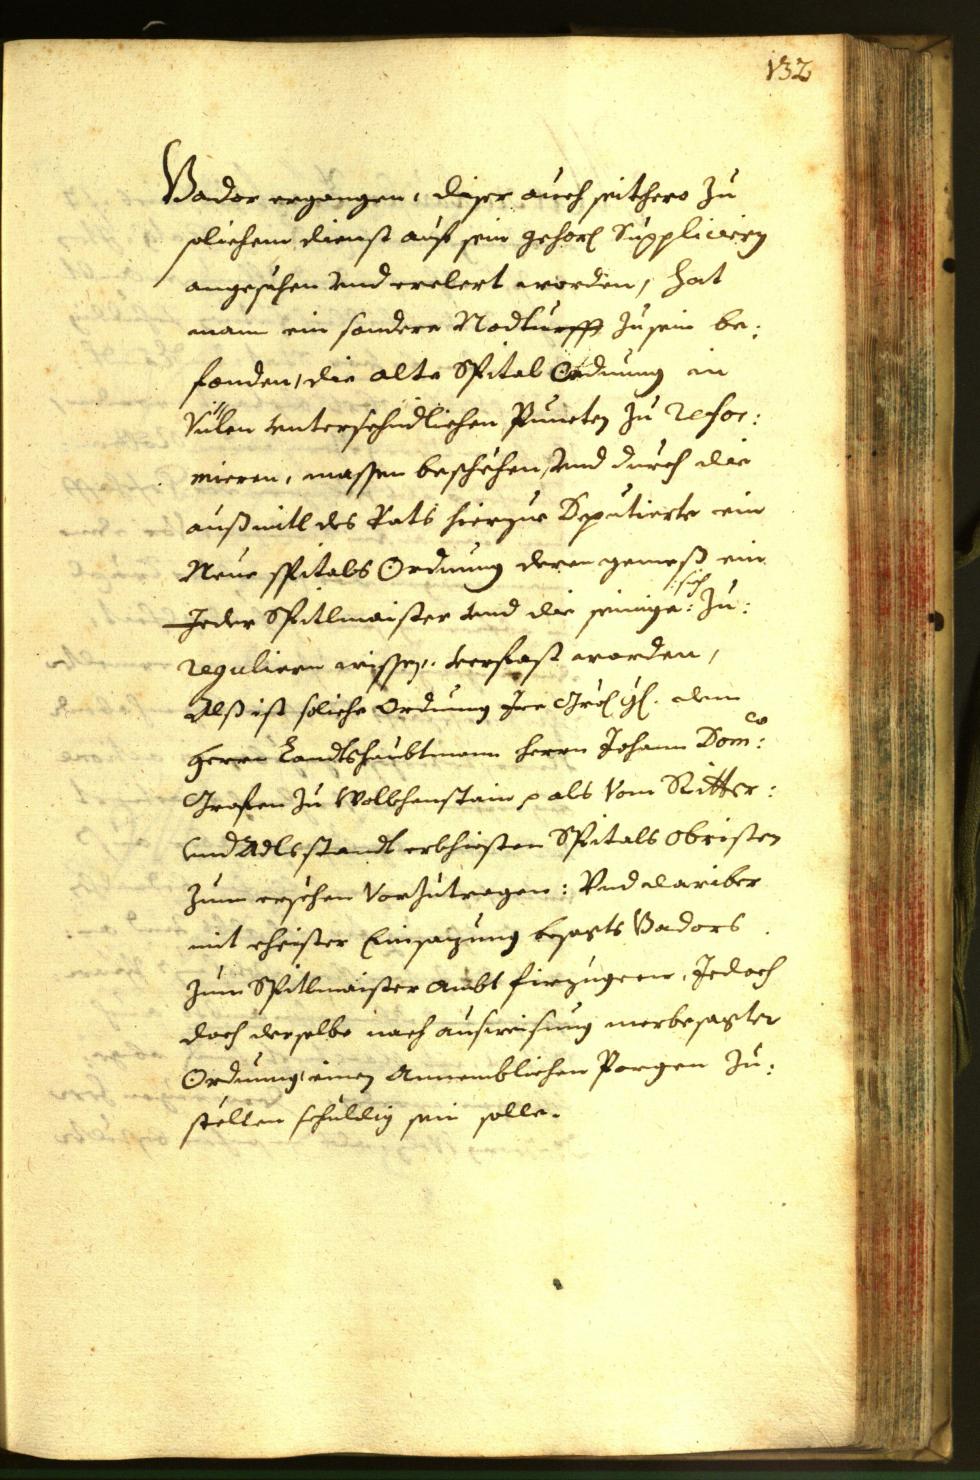 132
Bador ergangen, diser auch seithero zu
solichem dienst auf sein gehors Suppliciern
angesehen vnd erclert worden, hat
man ein sondere Nodturfft zu sein be„
fonden, die alte Spital Ordnung in
Vilen vnterschidlichen Puncten zu refor„
mieren, massen beschehen, vnd durch die
auß mitl des Rats hierzue Deputierte ein
Neue spitals Ordnung deren gemeß ein
Jeder Spitlmaister vnd die seinige :sich: zu„
regulieren wissen, verfast worden,
Alß ist soliche Ordnung Ire Gräf. Gl. dem
Herrn Landtshaubtmann herrn Johann Dom:co
Grafen zu Wolkhenstain p als Vom Ritter„
vnd Adlsstandt erkhiesten Spitals Obristen
zum ersehen Vorzutragen: Vnd dariber
mit eheister Einsazung besagts Badors
zum Spitlmaister Ambt firzugeen, Jedoch
doch derselbe nach aufweisung merbesagter
Ordnung, einen Annemblichen Porgen zu„
stellen schuldig sein solle.